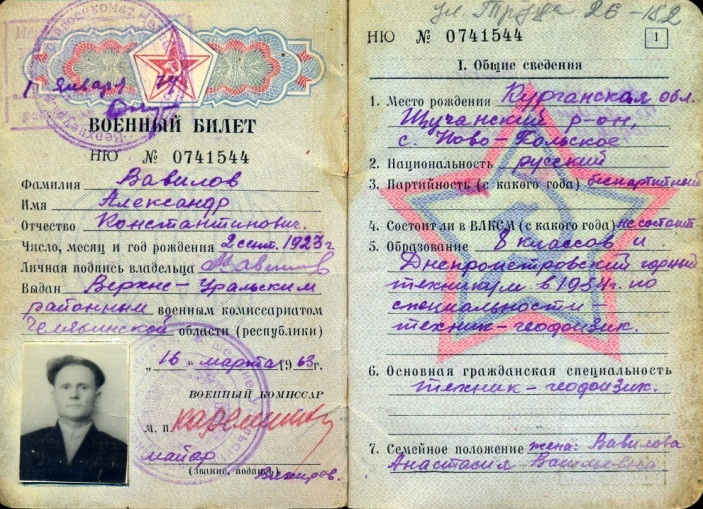 1 января
ВОЕННЫЙ БИЛЕТ
НЮ № 0741544
Фамилия Вавилов
Имя Александр
Отчество Константинович.
Число, месяц и год рождения 2 сент. 1923 г
Личная подпись владельца Вавилов
Выдан Верхне-Уральским
районным военным комиссариатом
Челябинской области (республики)
„16„ марта 1963 г.
ВОЕННЫЙ КОМИССАР
М. П.
майор
(Звание, подпись)
ул. Труда 26-182
НЮ № 0741544
1
I. Общие сведения
1. Место рождения Курганская обл.
Щучанский р-он,
с. Ново-
2. Национальность русский
3. Партийность (с какого года) беспартийный
4. Состоит ли в ВЛКСМ (с какого года) не состоит
5. Образование 8 классов и
Днепропетровский горный
техникум в 1954г. по
специальности
техник-геофизик.
6. Основная гражданская специальность
техник-геофизик.
7. Семейное положение жена: Вавилова
Анастасия Васильевна